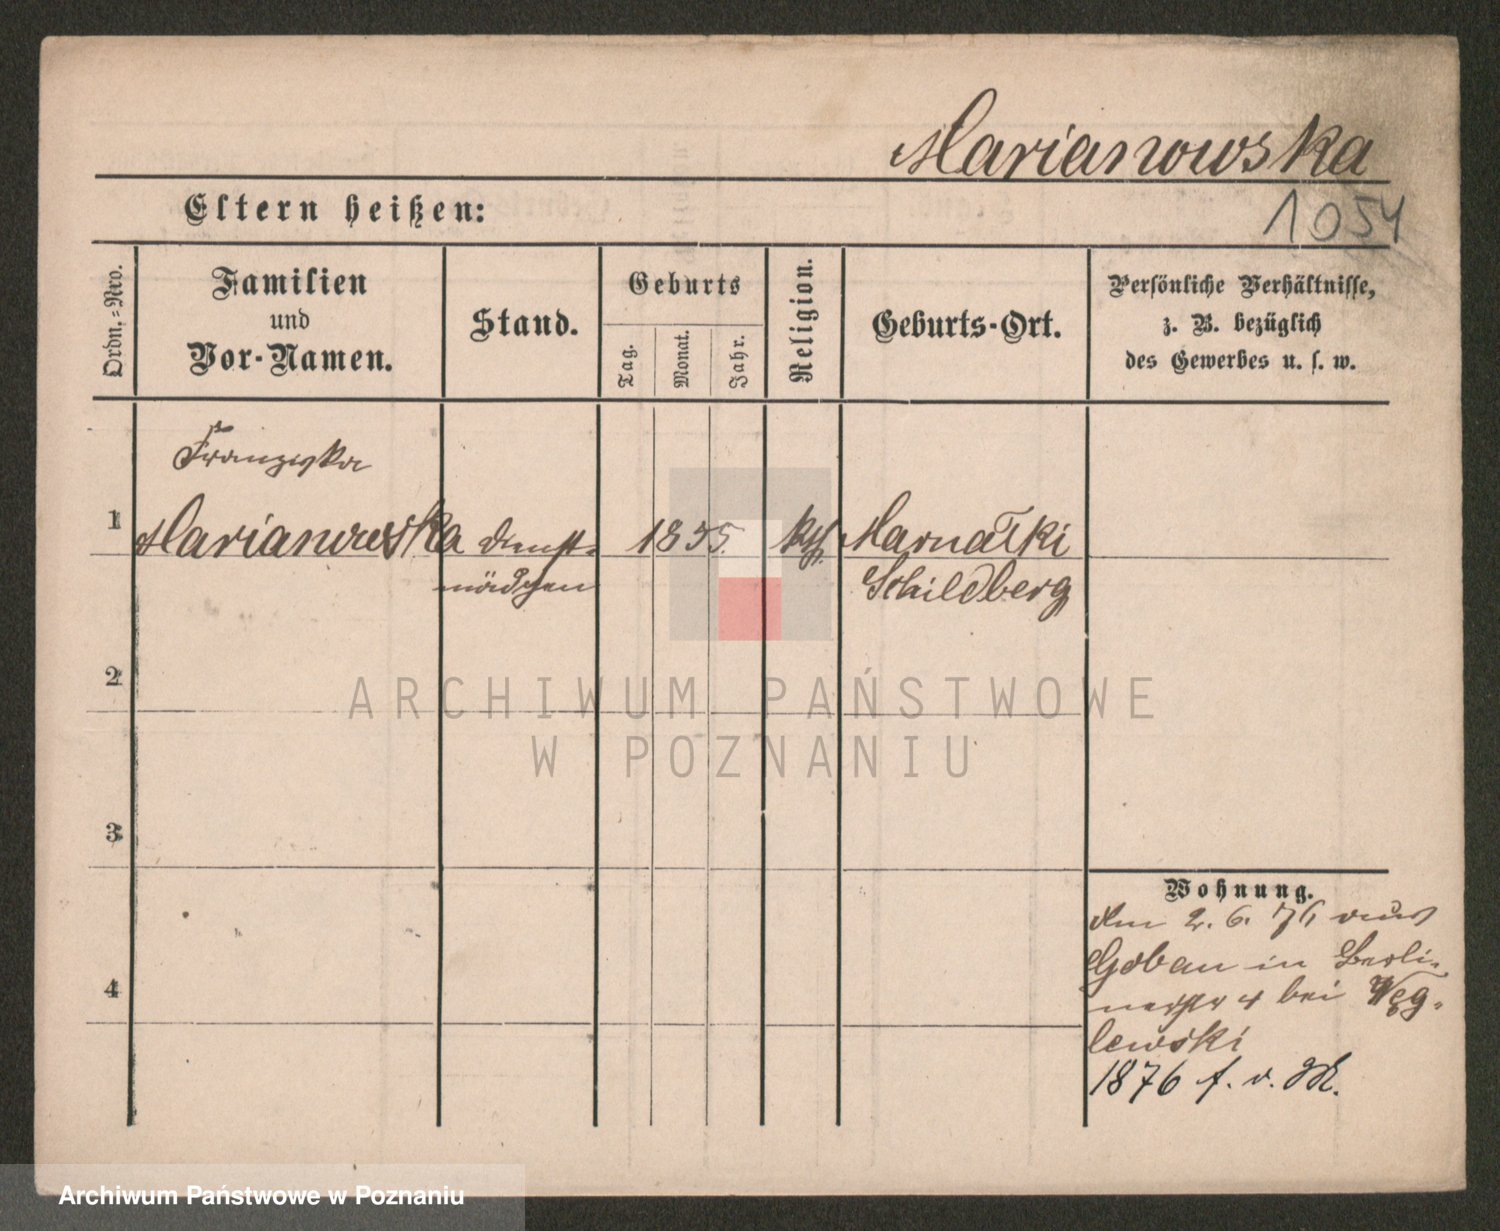 Marianowska
1054
Eltern heißen:
Ordn.-Nro.
Familien
und
Vor-Namen.
Stand.
Geburts
Tag.
Monat.
Jahr.
Religion.
Geburts-Ort.
Persönliche Verhältnisse,
z. B. bezüglich
des Gewerbes u. s. w.
Franziska
1 Marianowska Dienst- 1855 kth. Marnałki
mädchen Schildberg
2
3
4
Wohnung.
den 2. 6. 76 aus
in Berli-
nerstr 4 bei
lewski
1876 f. v. M.
ARCHIWUM PAŃSTWOWE
W POZNANIU
Archiwum Państwowe w Poznaniu